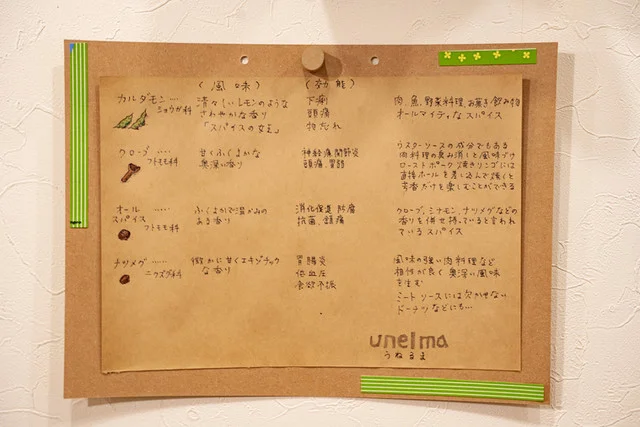 (風味)
(効能)
カルダモン……
ショウガ科
清々しいレモンのような
さわやかな香り
「スパイスの女王」
下痢
頭痛
物忘れ
肉、魚、野菜料理、お菓子、飲み物
オールマイティなスパイス
クローブ……
フトモモ科
甘くふくよかな
奥深い香り
神経痛 関節炎
頭痛 胃弱
ウスターソースの成分でもある
肉料理の臭み消しと風味づけ
ローストポーク、焼きリンゴには
直接ホールを
芳香だけを楽しむことができる
オール……
スパイス
フトモモ科
ふくよかで温かみの
ある香り
消化促進 防腐
抗菌、鎮痛
クローブ、シナモン、ナツメグなどの
香りを併せ持っていると言われ
ているスパイス
ナツメグ……
ニクズク科
微かに甘くエキゾチック
な香り
胃腸炎
低血圧
食欲不振
風味の強い肉料理など
相性が良く奥深い風味
を生む
ミートソースには欠かせない
ドーナツなどにも…
unelma
うねるま